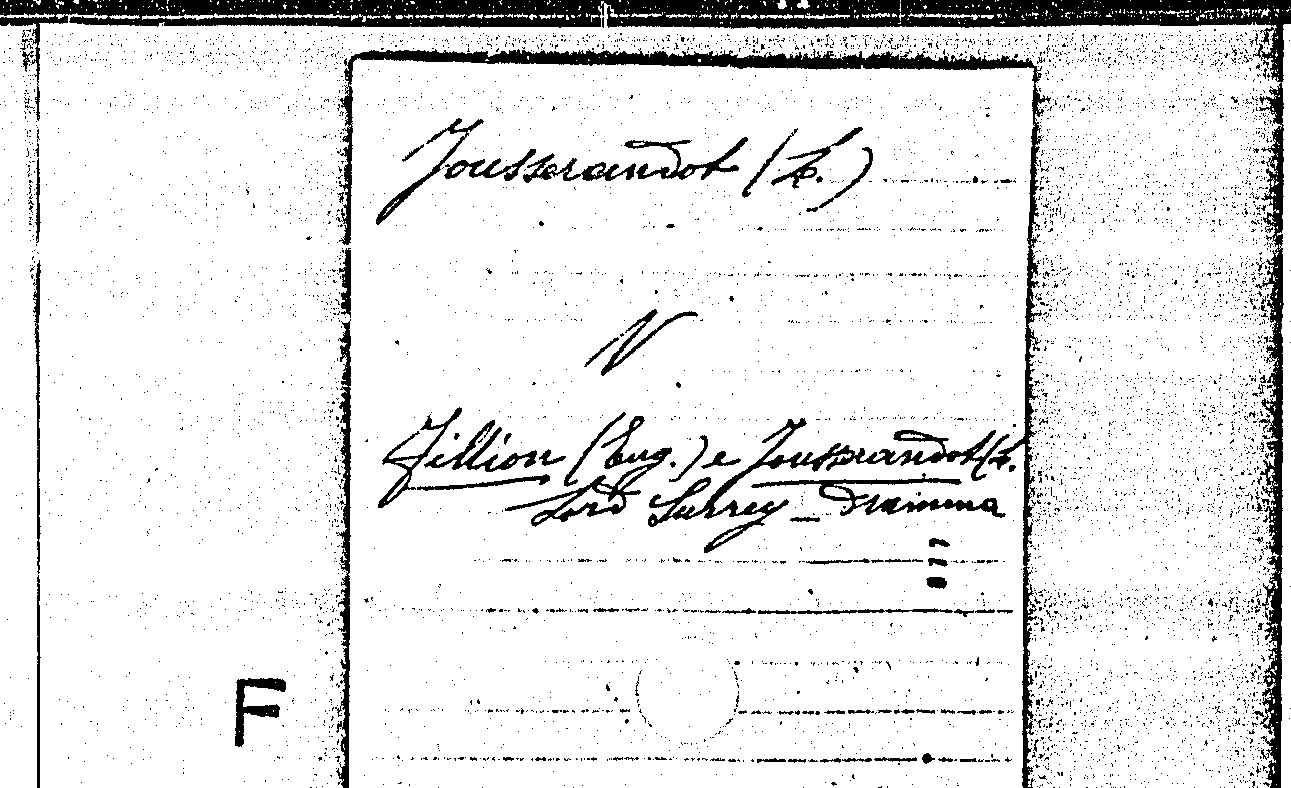 Jousserandot (L.)
V
Fillion (Eug.) e Jousserandot (L.
Lord Surrey _ Dramma
F